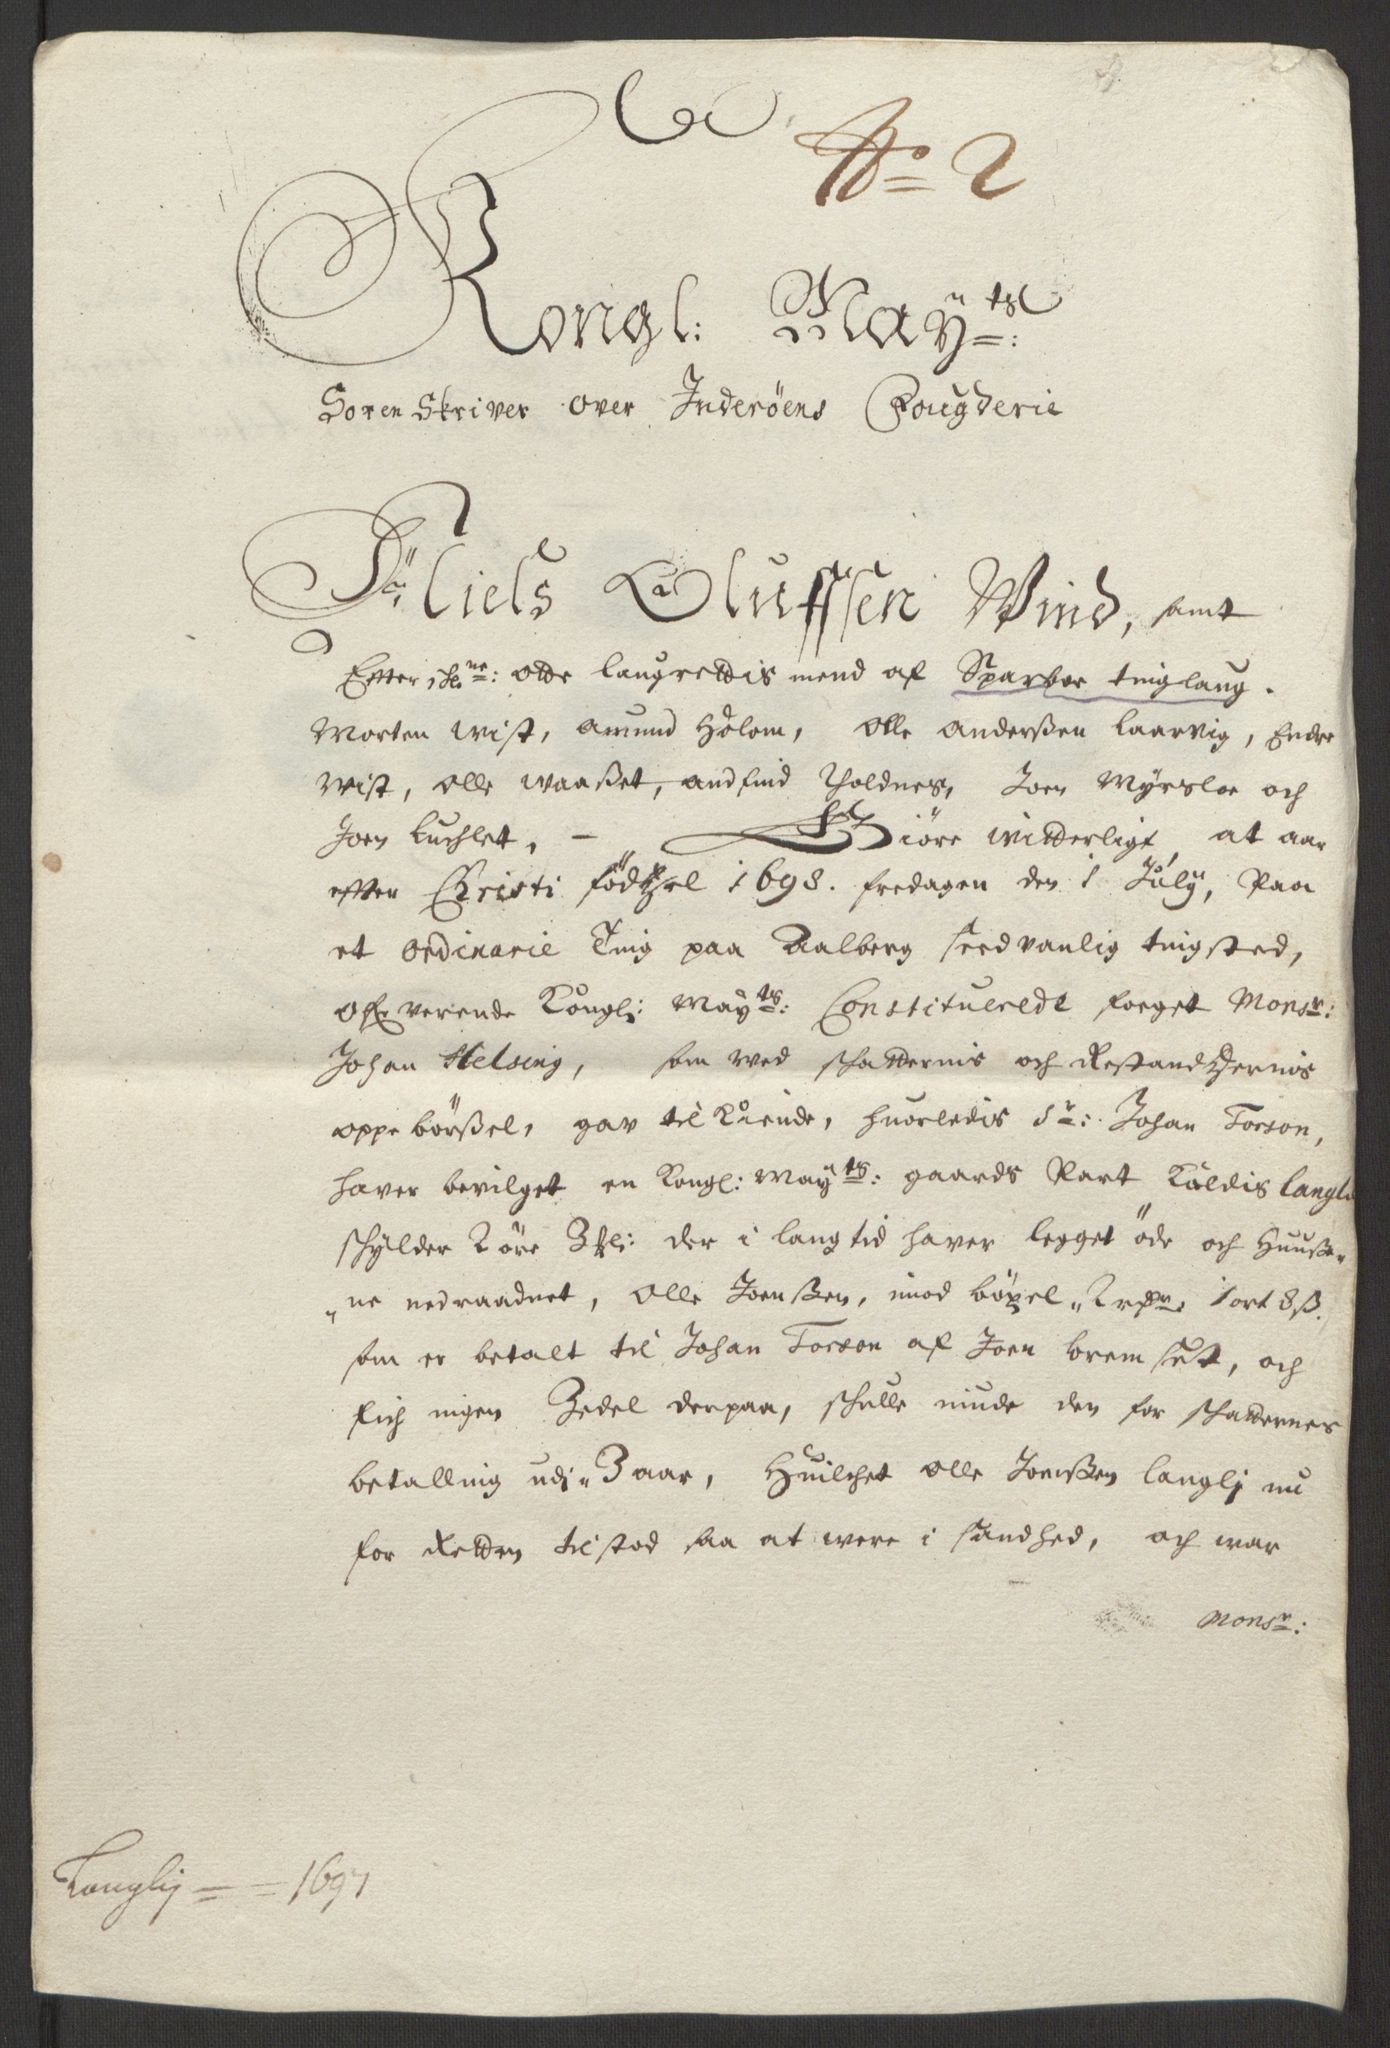 No 2
Kongl: Maÿts:
Soren Skriver over Inderöens Fougderie
Niels Oluffsen Wind, samt
Effter schne: otte laugrettis mend af Sparboe tinglaug.
Morten Wist, Amund Holom, Olle Anderßen Laarvig, Endre
Wist, Olle Waaßet, Andfind Tholdnes, Joen Myrsloe och
Joen Luchlet, – Giöre witterligt, at aar
effter Christi födtzel 1698. fredagen den 1 July, Paa
et ordinarie Ting paa Aalberg seedvanlig tingsted,
ofververende Kongl: Mayts: Constituerede foeget Monsr:
Johan Helsing, som wed schatternis och Restandzernis
oppebörßel, gav til Kiende, huorledis Sr: Johan Torson,
haver bevilget en Kongl: Mayts: gaards Part Kaldis Langli
schylder 2 öre 3 : der i lang tid haver legget öde och Huuße„
„ne nedraadnet, Olle Joenßen, imod böxel „2 rdr 1 ort 8 ß.
som er betalt til Johan Torson af Joen Brem , och
fich ingen Zedel derpaa, schulle niude den for schatternes
betalling udi „3 aar, Huilchet Olle Joenßen Langli nu
for Retten tilstod saa at were i sandhed, och war
Monsr:
Langlij == 1697